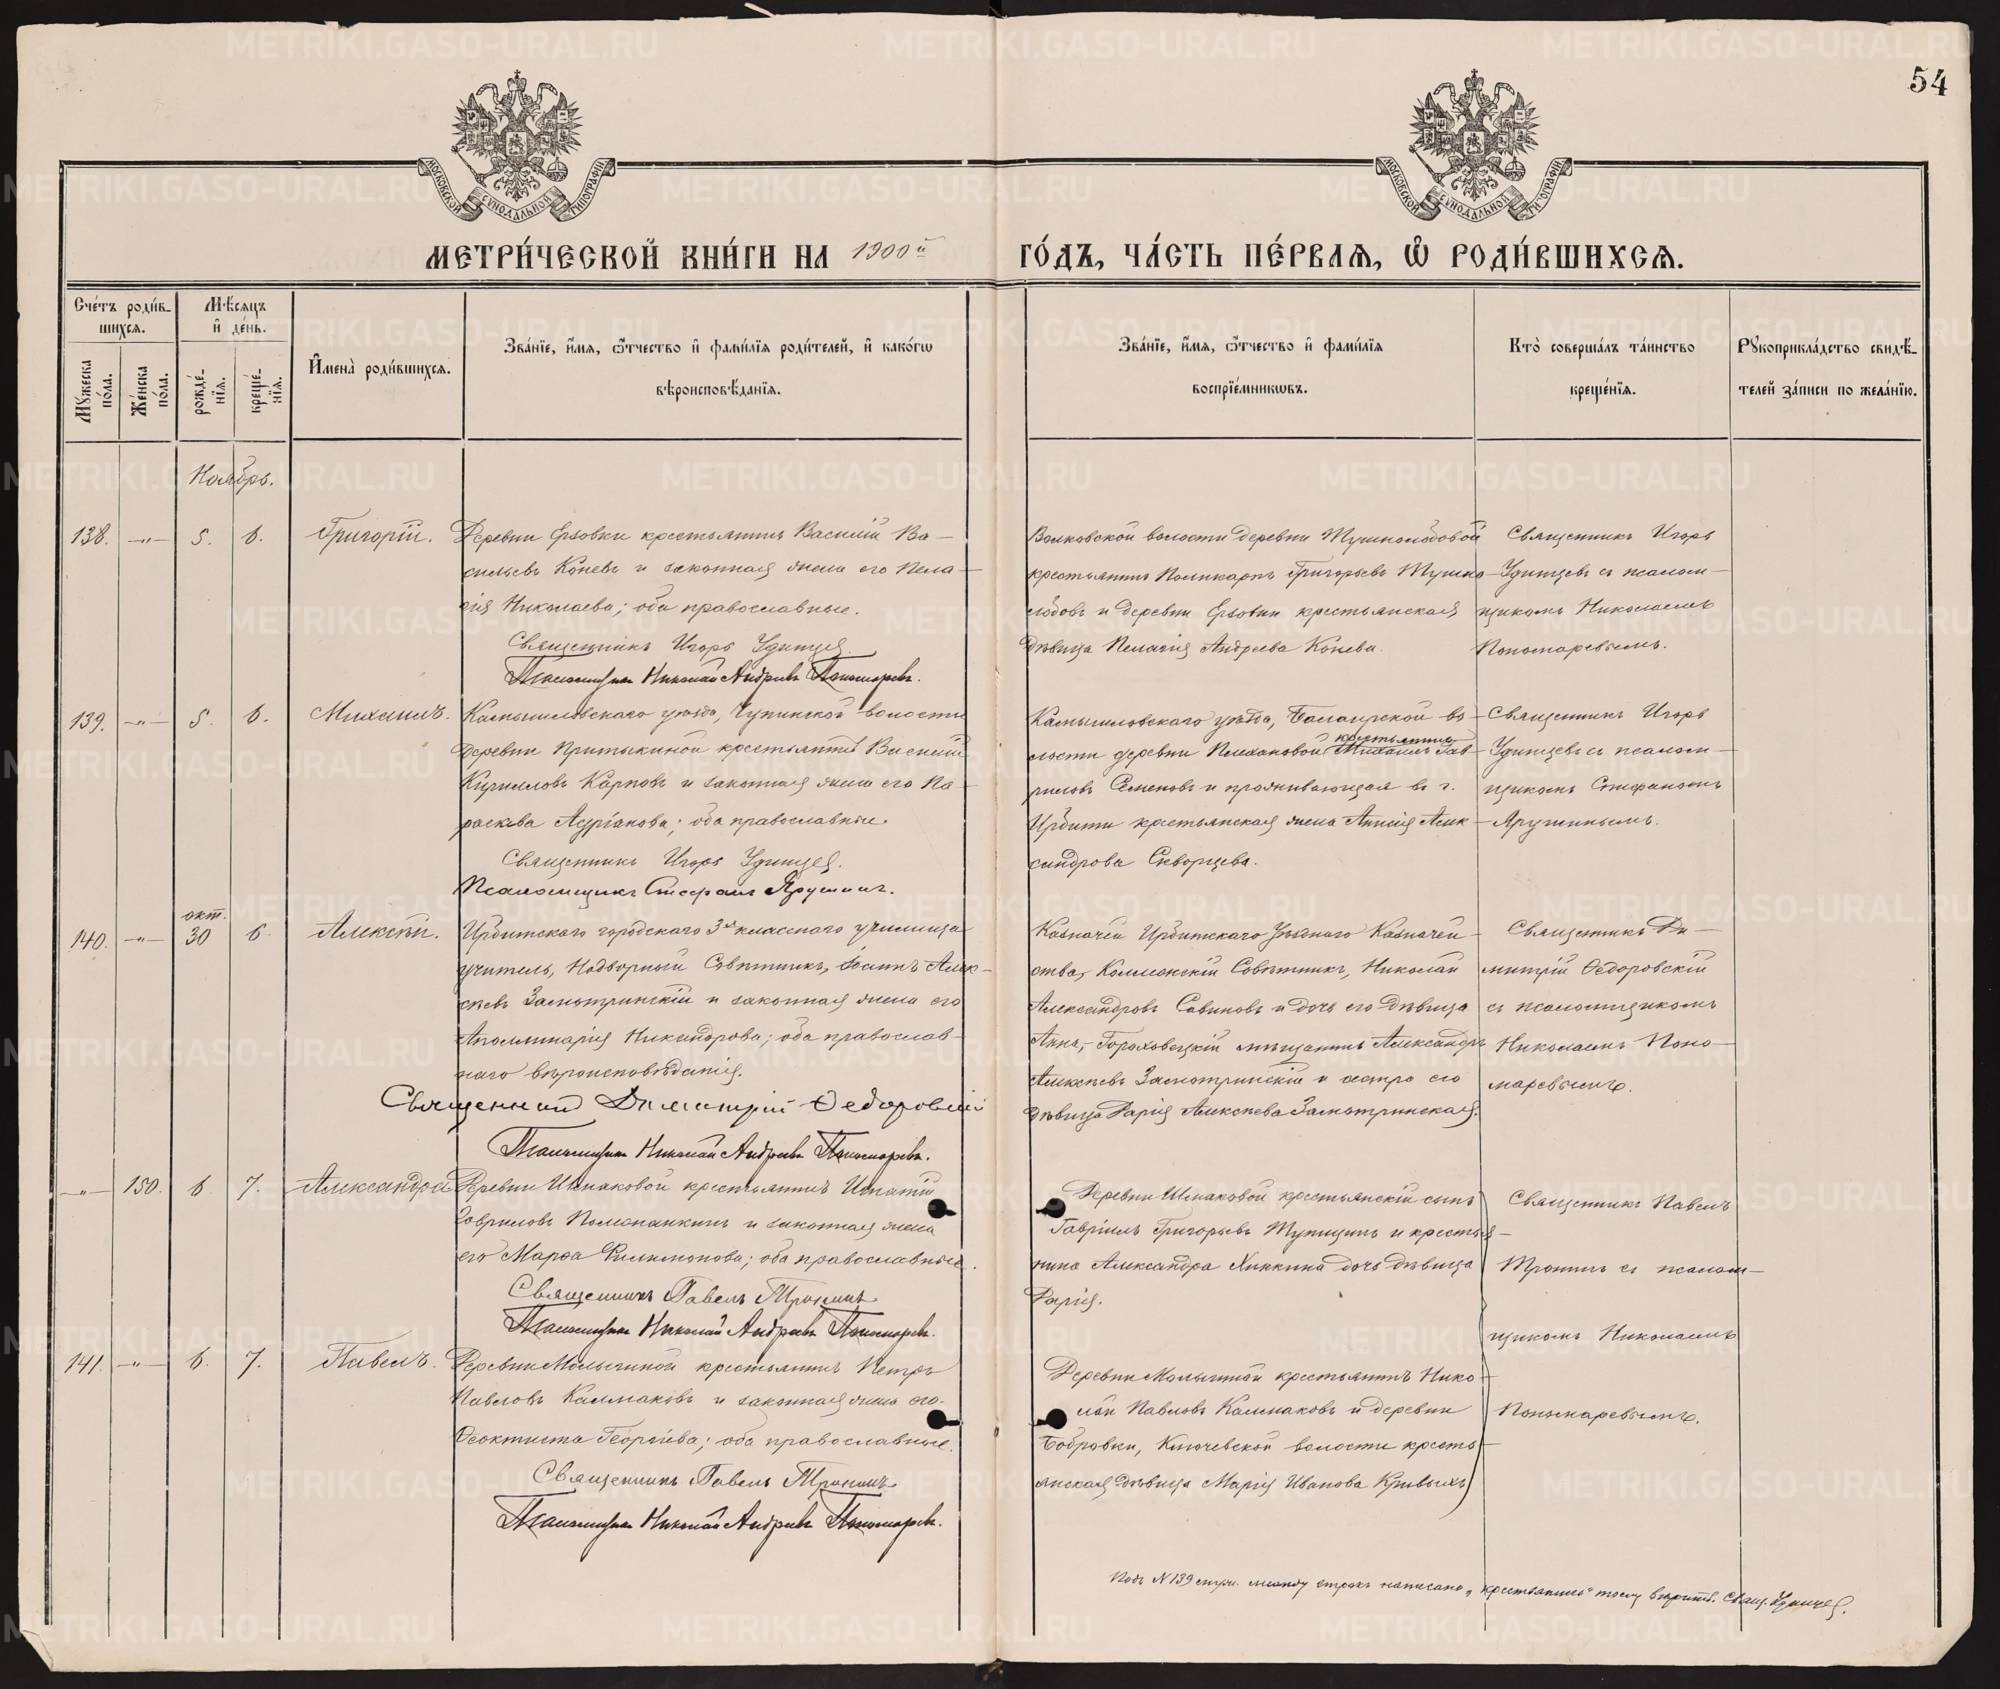 54
МОСКОВСКОЙ СУНОДАЛЬНОЙ ТИПОГРАФІИ
МОСКОВСКОЙ СУНОДАЛЬНОЙ ТИПОГРАФІИ
МЕТРИ́ЧЕСКОЙ КНИ́ГИ НА 1900й ГО́ДЪ, ЧА́СТЬ ПЕ́РВАЯ, Ѡ РОДИ́ВШИХСЯ.
Сче́тъ роди́в-
шихся.
Мѣ́сяцъ
и де́нь.
Мꙋжеска по́ла.
Же́нска по́ла.
рожде́нїя.
креще́нїя.
Имена̀ роди́вшихся.
Зва́нїе, и́мя, ѻ́тчество и фами́лїя роди́телей, и како́гѡ
вѣроисповѣ́данїя.
Зва́нїе, и́мя, ѻ́тчество и фами́лїя
воспрїе́мникѡвъ.
Кто̀ соверша́лъ та́инство
креще́нїя.
Рꙋкоприкла́дство свидѣ́-
телей за́писи по жела́нїю.
Ноябрь.
138. —„— 5. 6. Григорій.
Деревни Ерзовки крестьянинъ Василій Ва-
сильевъ Коневъ и законная жена его Пела-
гія Николаева; оба православные.
Священникъ Игорь Удинцев.
Псаломщикъ Николай Андреевъ Пономаревъ.
Волковской волости деревни Тушнолобовой
крестьянинъ Поликарпъ Григорьевъ Тушно-
лобовъ и деревни Ерзовки крестьянская
дѣвица Пелагія Андреева Конева.
Священникъ Игорь
Удинцевъ съ псалом-
щикомъ Николаемъ
Пономаревымъ.
139. —„— 5. 6. Михаилъ.
Камышловскаго уѣзда, Чупинской волости
деревни Притыкиной крестьянинъ Василій
Кирилловъ Карповъ и законная жена его Па-
раскева Адріанова; оба православные.
Священникъ Игорь Удинцев.
Псаломщикъ Стефанъ Ярушинъ.
Камышловскаго уѣзда, Балаирской во-
лости деревни Плехановой крестьянинъ Михаилъ Гав-
риловъ Семеновъ и проживающая въ г.
Ирбити крестьянская жена Анисія Алек-
сандрова Скворцева.
Священникъ Игорь
Удинцевъ съ псалом-
щикомъ Стефаномъ
Ярушинымъ.
140. —„— окт. 30 6. Алексѣй.
Ирбитскаго городскаго 3хъ класснаго училища
учитель, Надворный Совѣтникъ, Іоаннъ Алек-
сѣевъ Замятринскій и законная жена его
Аполлинарія Никандрова; оба православ-
наго вѣроисповѣданія.
Священникъ Димитрій Ѳедоровскій
Псаломщикъ Николай Андреевъ Пономаревъ.
Казначей Ирбитскаго Уѣзднаго Казначей-
ства, Коллежскій Совѣтникъ, Николай
Александровъ Савиновъ и дочь его дѣвица
Анна, Гороховецкій мѣщанинъ Александръ
Алексѣевъ Замятринскій и сестра его
дѣвица Марія Алексѣева Замятринская.
Священникъ Ди-
митрій Ѳедоровскій
съ псаломщикомъ
Николаемъ Поно-
маревымъ.
—„— 150. 6. 7. Александра
Деревни Шмаковой крестьянинъ Игнатій
Гавриловъ Поможанкинъ и законная жена
его Марѳа Филимонова; оба православные.
Священникъ Павелъ Тронинъ
Псаломщикъ Николай Андреевъ Пономаревъ.
Деревни Шмаковой крестьянскій сынъ
Гавріилъ Григорьевъ Тупицинъ и крестья-
нина Александра Хинкина дочь дѣвица
Марія.
Священникъ Павелъ
Тронинъ съ псалом-
щикомъ Николаемъ
Пономаревымъ.
141. —„— 6. 7. Павелъ.
Деревни Мольчиной крестьянинъ Петръ
Павловъ Калмаковъ и законная жена его
Ѳеоктиста Георгіева; оба православные.
Священникъ Павелъ Тронинъ
Псаломщикъ Николай Андреевъ Пономаревъ.
Деревни Мольчиной крестьянинъ Нико-
лай Павловъ Калмаковъ и деревни
Бобровки, Ключевской волости кресть-
янская дѣвица Марія Иванова Кривыхъ
Подъ N 139 между строкъ написано „крестьянинъ" тому вѣрить. Свящ. Удинцев.